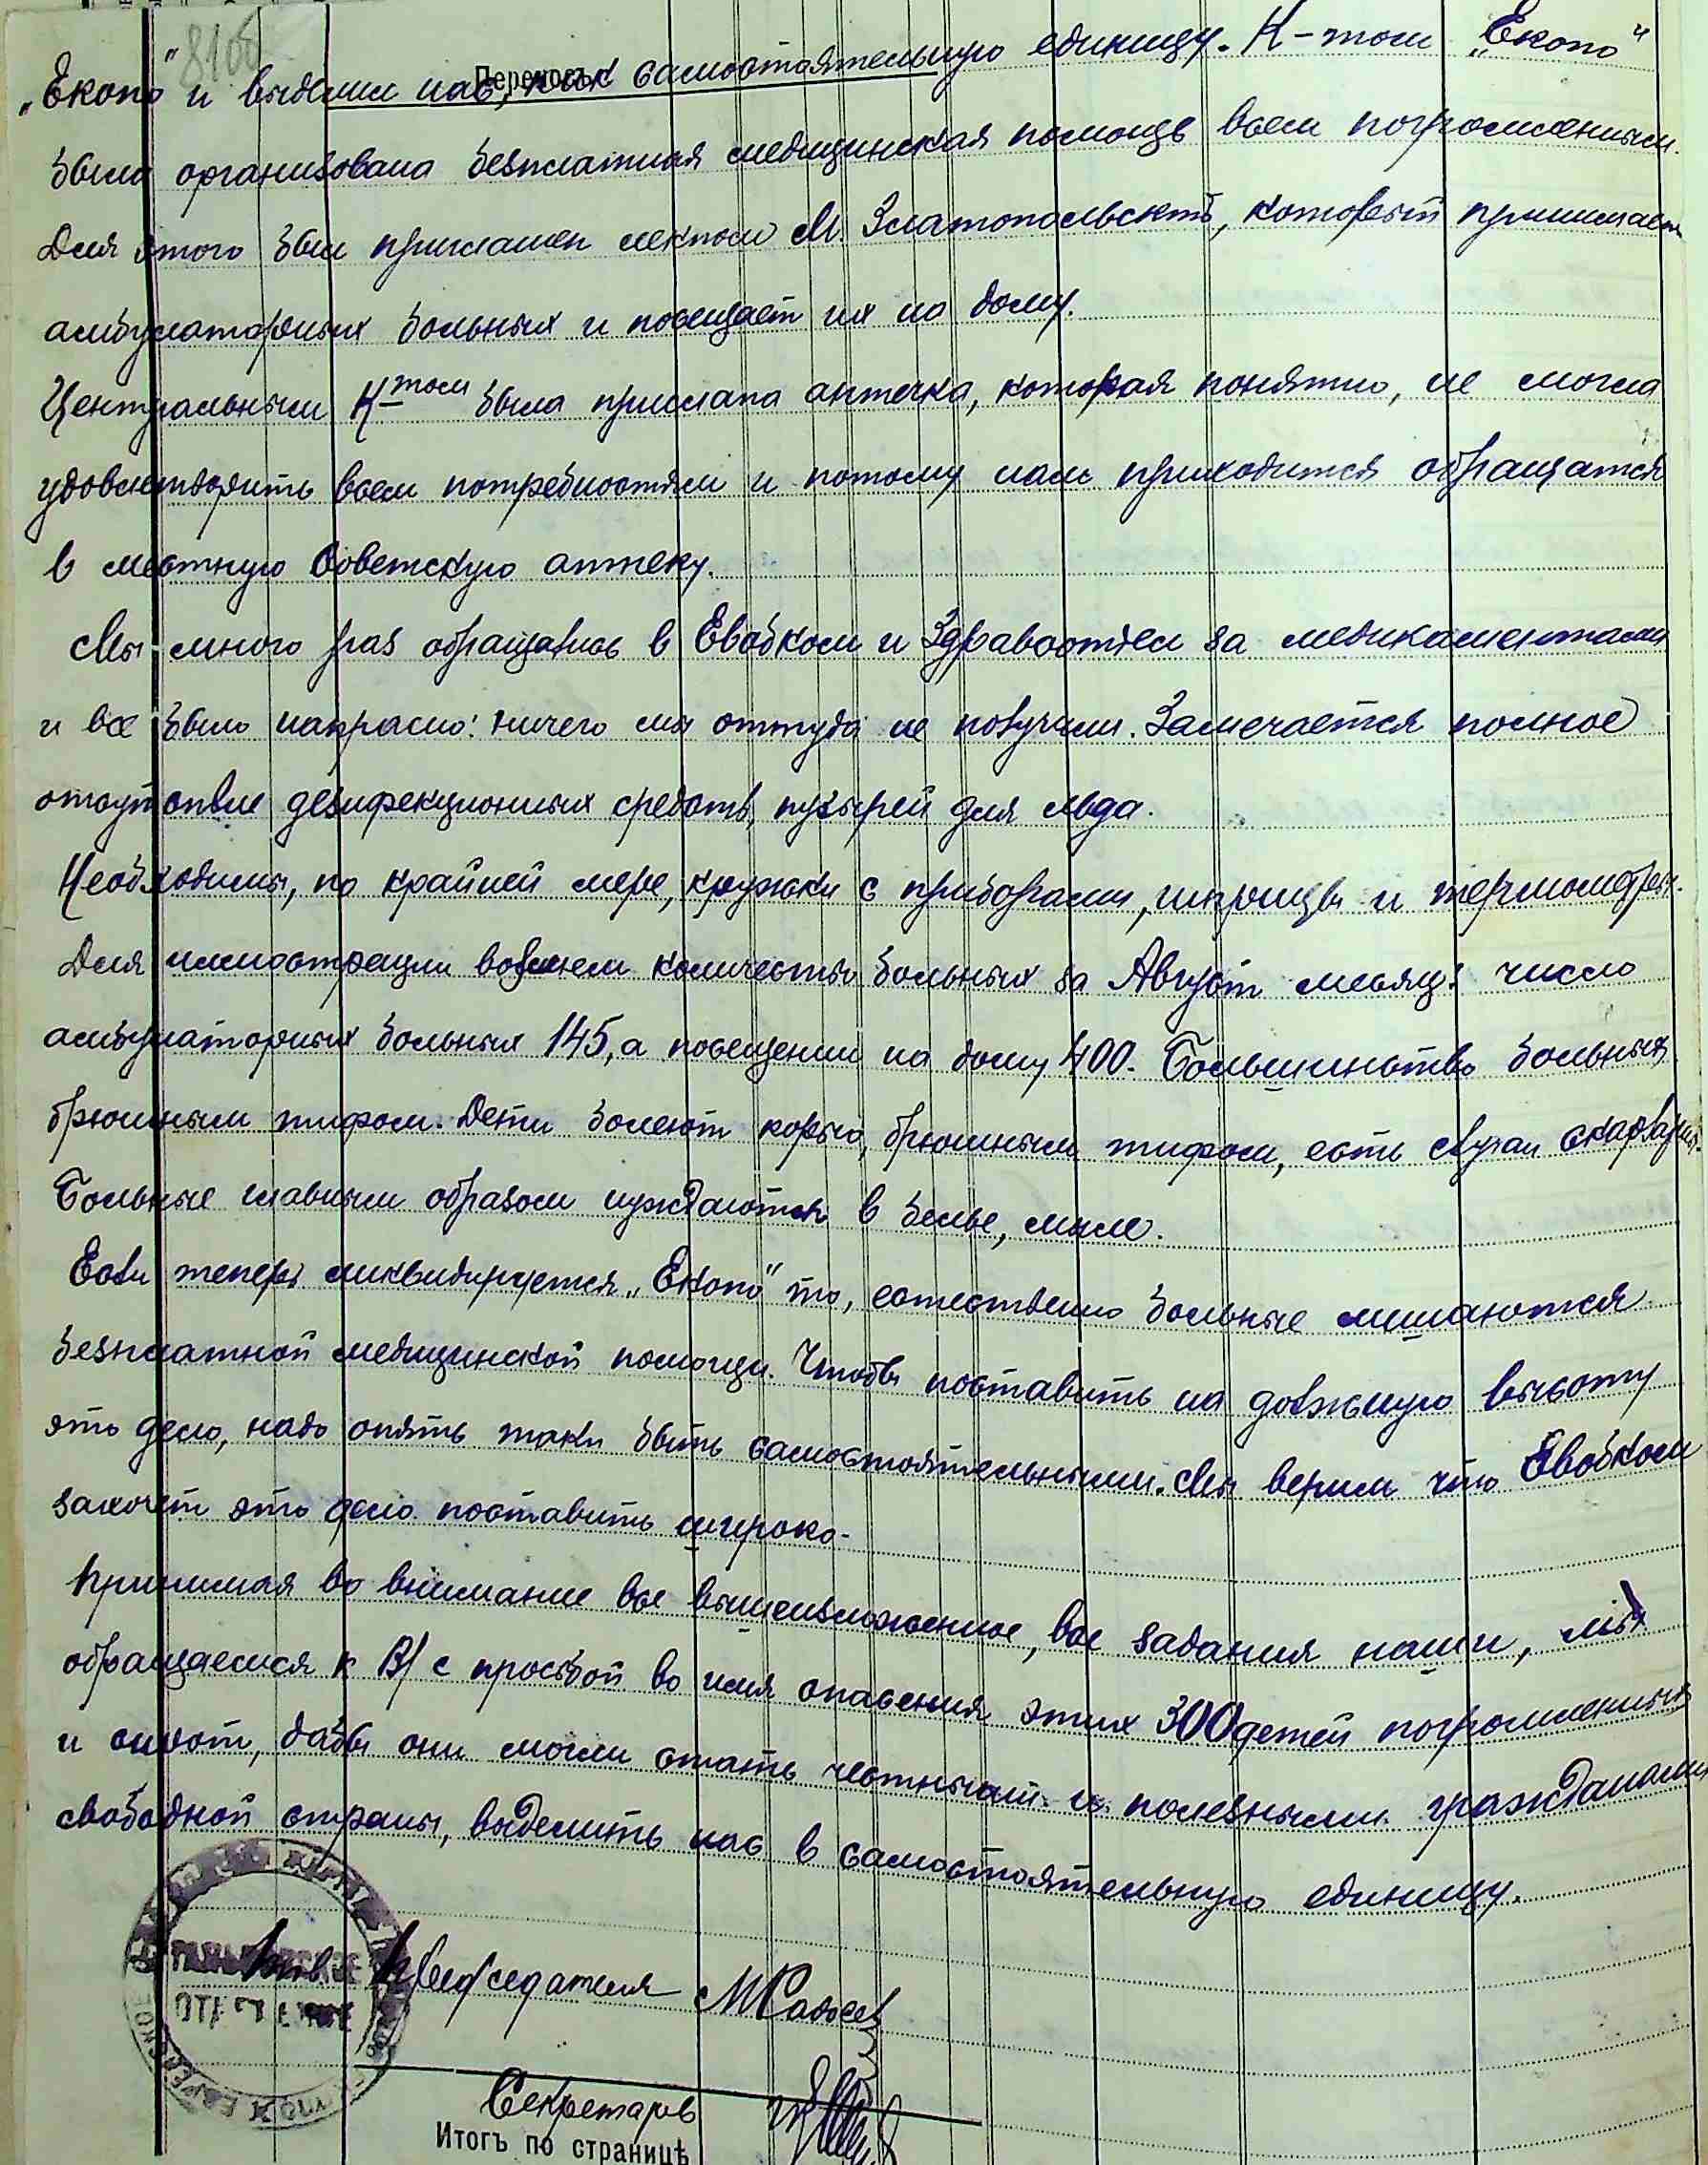 8106
Переносъ
„Екопо" и выделили нас, как самостоятельную единицу. К-том „Екопо"
была организована безплатная медицинская помощь всем погромленным.
Для этого был приглашен лекпом М. Златопольский, который принимает
амбулаторных больных и посещает их на дому.
Центральным К-том была прислана аптечка, которая понятно, не могла
удовлетворить всем потребностям и потому нам приходится обращатся
в местную Советскую аптеку.
Мы много раз обращались в Евобком и Здравотдел за медикаментами
и все было напрасно: ничего мы оттуда не получили. Замечается полное
отсутствие дезинфекционных средств, пузырей для льда.
Необходимы, по крайней мере, кружки с приборами, шприцы и термометры.
Для иллюстрации возьмем количество больных за Август месяц: число
амбулаторных больных 145, а посещений на дому 400. Большинство больных
брюшным тифом. Дети болеют корью, брюшным тифом, есть случаи скарлатины.
Больные главным образом нуждаются в белье, мыле.
Если теперь ликвидируется „Екопо" то, естественно больные лишаются
безплатной медицинской помощи. Чтобы поставить на должную высоту
это дело, надо опять таки быть самостоятельными. Мы верим что Евобком
захочет это дело поставить широко.
Принимая во внимание все вышеизложенное, все задания наши, мы
обращаемся к В/ с просьбой во имя спасения этих 300 детей погромленных
и сирот, дабы они могли стать честными и полезными гражданами
свободной страны, выделить нас в самостоятельную единицу.
Председателя
ОТДЕЛЕНИЕ
Секретарь
Итогъ по страницѣ